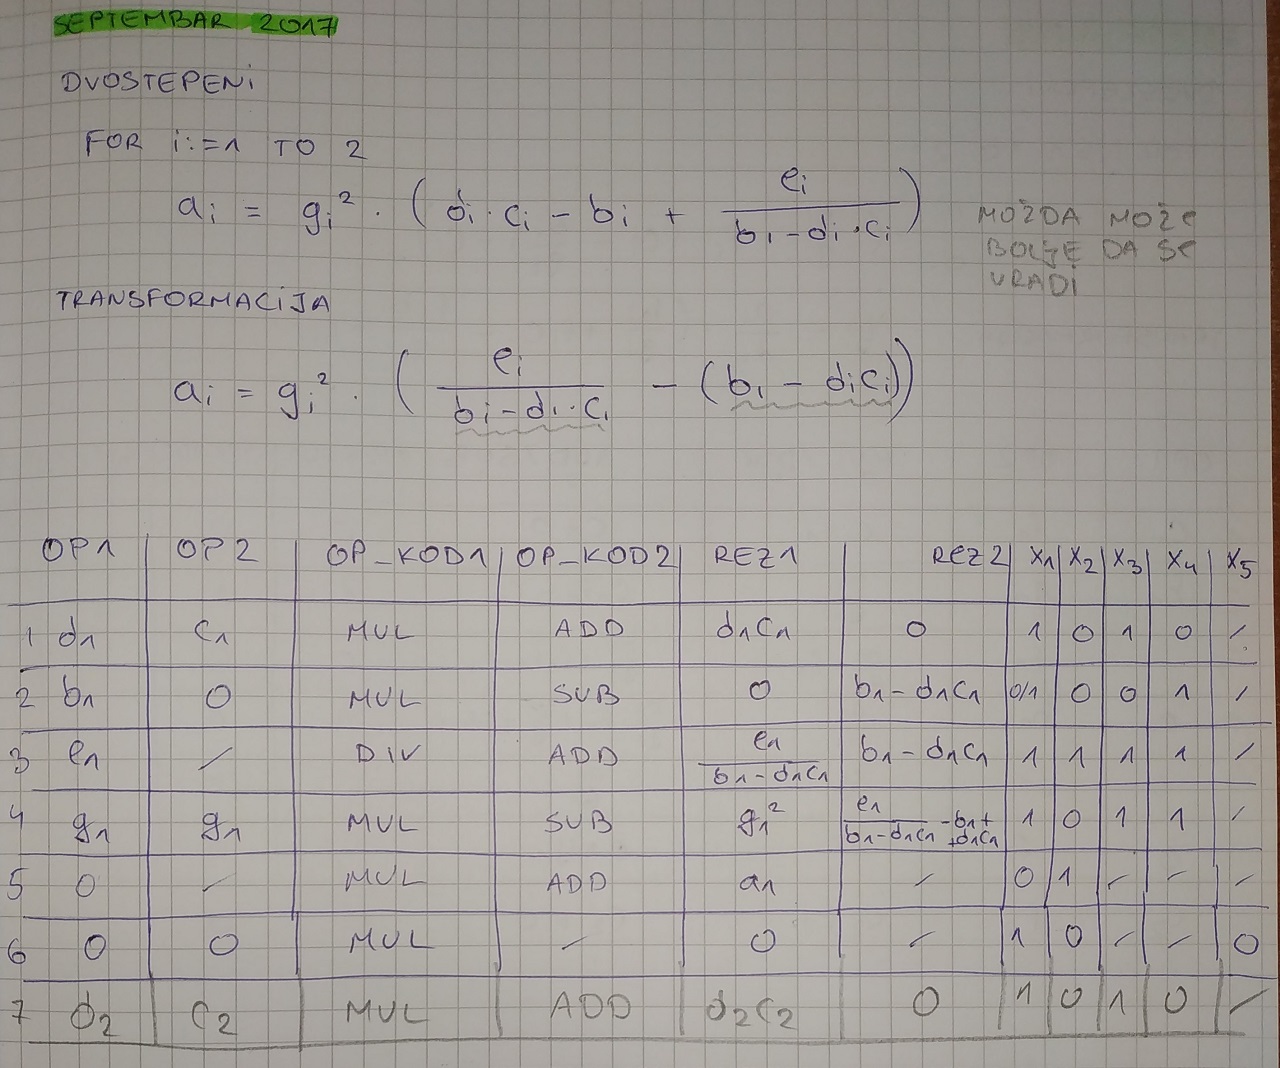 SEPTEMBAR 2017
DVOSTEPENI
FOR i:=1 TO 2
aᵢ = gᵢ² · ( dᵢ · cᵢ - bᵢ + eᵢ / (bᵢ - dᵢ · cᵢ) )
MOŽDA MOŽE
BOLJE DA SE
URADI
TRANSFORMACIJA
aᵢ = gᵢ² · ( eᵢ / (bᵢ - dᵢ · cᵢ) - (bᵢ - dᵢcᵢ) )
OP1 OP2 OP_KOD1 OP_KOD2 REZ1 REZ2 X1 X2 X3 X4 X5
1 d1 c1 MUL ADD d1c1 0 1 0 1 0 /
2 b1 0 MUL SUB 0 b1-d1c1 0/1 0 0 1 /
3 e1 / DIV ADD e1/(b1-d1c1) b1-d1c1 1 1 1 1 /
4 g1 g1 MUL SUB g1² e1/(b1-d1c1) -b1+ +d1c1 1 0 1 1 /
5 0 / MUL ADD a1 / 0 1 / / /
6 0 0 MUL / 0 / 1 0 / / 0
7 d2 c2 MUL ADD d2c2 0 1 0 1 0 /